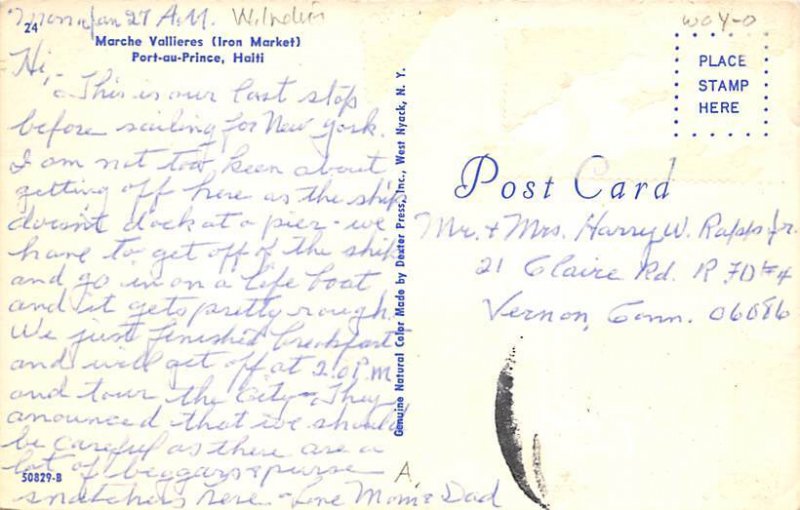 Mon Jan 27 A.M. W. Indies
way-0
24
Marche Vallieres (Iron Market)
Port-au-Prince, Haiti
Hi,-
This is our last stop
before sailing for New York.
I am not too keen about
getting off here as the ship
doesn't dock at a pier - we
have to get off of the ship
and go in on a life boat
and it gets pretty rough.
We just finished breakfast
and will get off at 2.0 P.M
and tour the city. They
anounced that we should
be careful as there are a
lot of beggars & purse
snatchers here - Love Mom & Dad
50829-B
Genuine Natural Color Made by Dexter Press, Inc., West Nyack, N. Y.
A
PLACE
STAMP
HERE
Post Card
Mr. & Mrs. Harry W. Rapps Jr.
21 Claire Rd. R FD #4
Vernon, Conn. 06086